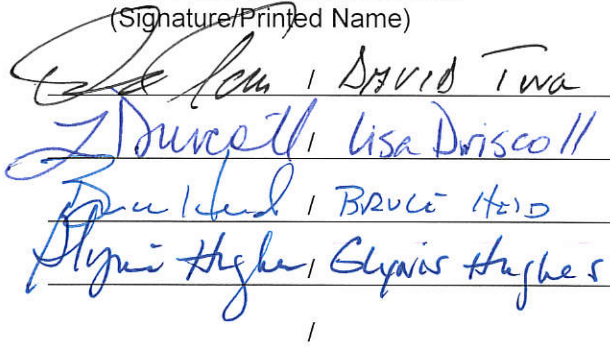 (Signature/Printed Name)
/ DAVID Twa
L Driscoll / Lisa Driscoll
Bruce Heid / BRUCE HEID
Glynis Hughes / Glynis Hughes
/